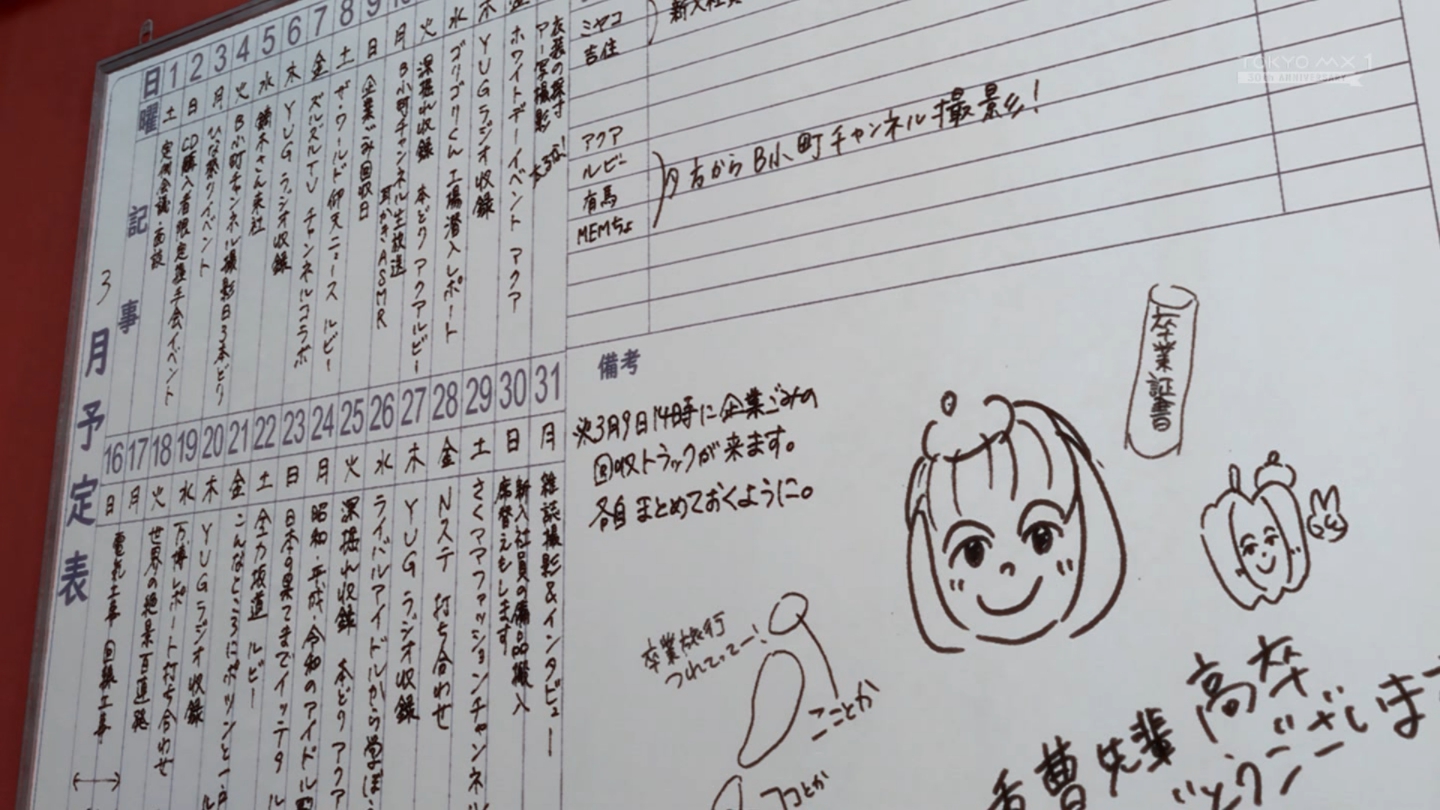 3月予定表
日 曜 記事
1 土 定例会議・面談
2 日 CD購入者限定握手会イベント
3 月 ひな祭りイベント
4 火 B小町チャンネル撮影日3本どり
5 水 鏑木さん来社
6 木 YUGラジオ収録
7 金 ズルズルTV チャンネルコラボ
8 土 ザ・ワールド仰天ニュース ルビー
9 日 企業ごみ回収日
月 B小町チャンネル生放送
耳かきASMR
火 深掘れ収録 本どり アクアルビー
水 ゴリゴリくん工場潜入レポート
木 YUGラジオ収録
ホワイトデーイベント アクア
アー写撮影
16 日 電気工事 回線工事
17 月
18 火 世界の絶景百連発
19 水 万博レポート打ち合わせ
20 木 YUGラジオ収録
21 金 こんなところにポツンと一
22 土 全力坂道 ルビー
23 日 日本の果てまでイッテタ ル
24 月 昭和・平成・令和のアイドル
25 火 深掘れ収録 本どり アクア
26 水 ライバルアイドルから学ぼ
27 木 YUGラジオ収録
28 金 Nステ 打ち合わせ
29 土 さくアアファッションチャンネル
30 日 新入社員の備品搬入
席替えもします
31 月 雑誌撮影&インタビュー
ミヤコ
吉住
新入社員
アクア
ルビー
有馬
MEMちょ
夕方からB小町チャンネル撮影!
備考
※3月9日14時に企業ごみの
回収トラックが来ます。
各自まとめておくように。
卒業証書
卒業旅行
つれてってー!
こことか
ココとか
重曹先輩 高卒
とうございます
TOKYO MX 1
30th ANNIVERSARY